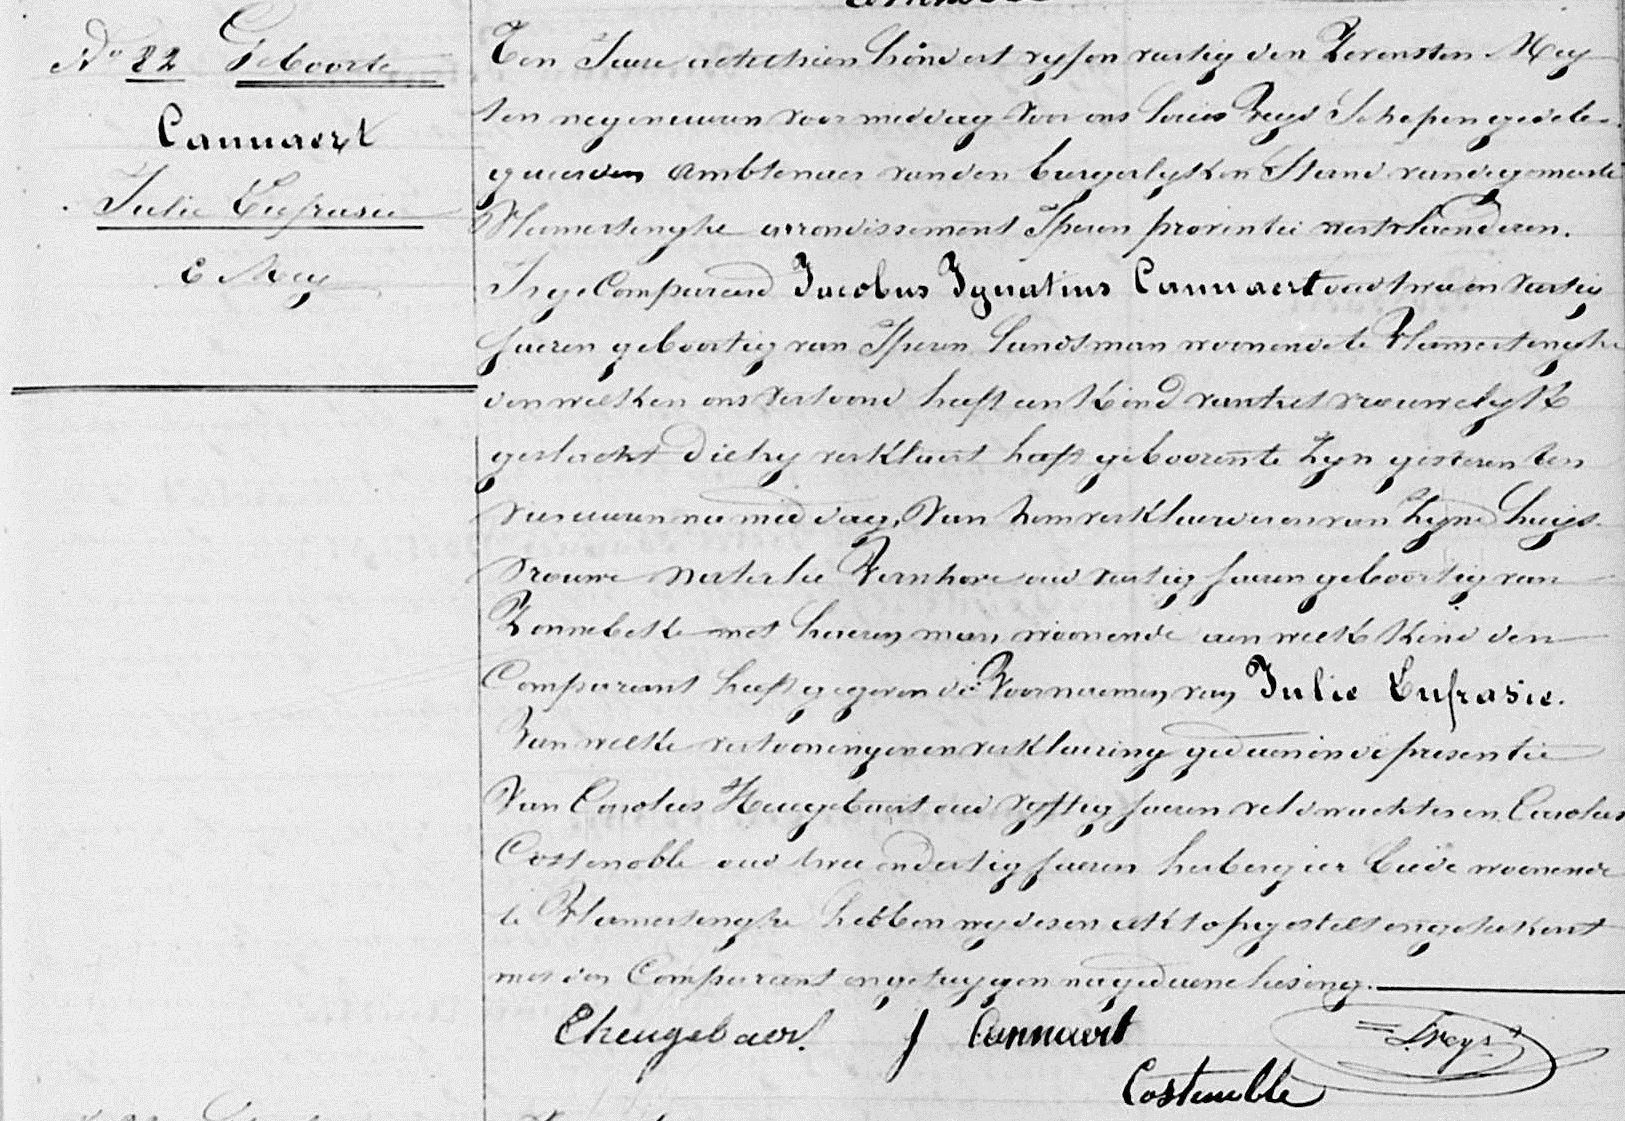 No 82 Geboorte
Cannaert
Julie Eufrasie
6 Mey
Ten Jaere achthien hondert vyf en veertig den Zevensten Mey
ten negen euren voor middag voor ons Louis Dreys Schepen gedele-
gueerden Ambtenaer van den burgerlyken Stand van de gemeente
Vlamertynghe arrondissement Yperen provintie westvlaenderen.
Is ge Compareerd Jacobus Ignatius Cannaert oud twee en veertig
Jaeren geboortig van Yperen Landsman woonende te Vlamertynghe
den welken ons vertoond heeft een Kind van het vrouwelyk
geslacht die hy verklaert heeft gebooren te Zyn gisteren ten
vier euren na middag, Van hem verklaerder en van Zyne huys-
vrouwe Nathalie Vernhove oud veertig Jaeren geboortig van
Zonnebeke met haeren man, woonende aen welk Kind den
Comparant heeft gegeven de Voornaemen van Julie Eufrasie.
Van welke vertooning en verklaering gedaen in de presentie
Van Carolus Heugebaert oud vyftig Jaeren veldwachter en Carolus
Costenoble oud twee en dertig Jaeren herbergier beide woonende
te Vlamertynghe hebben wy desen akt opgestelt en geteekent
met den Comparant en getuygen na gedaene lesing.
C heugebaer. J Cannaert Dreys
Costenoble